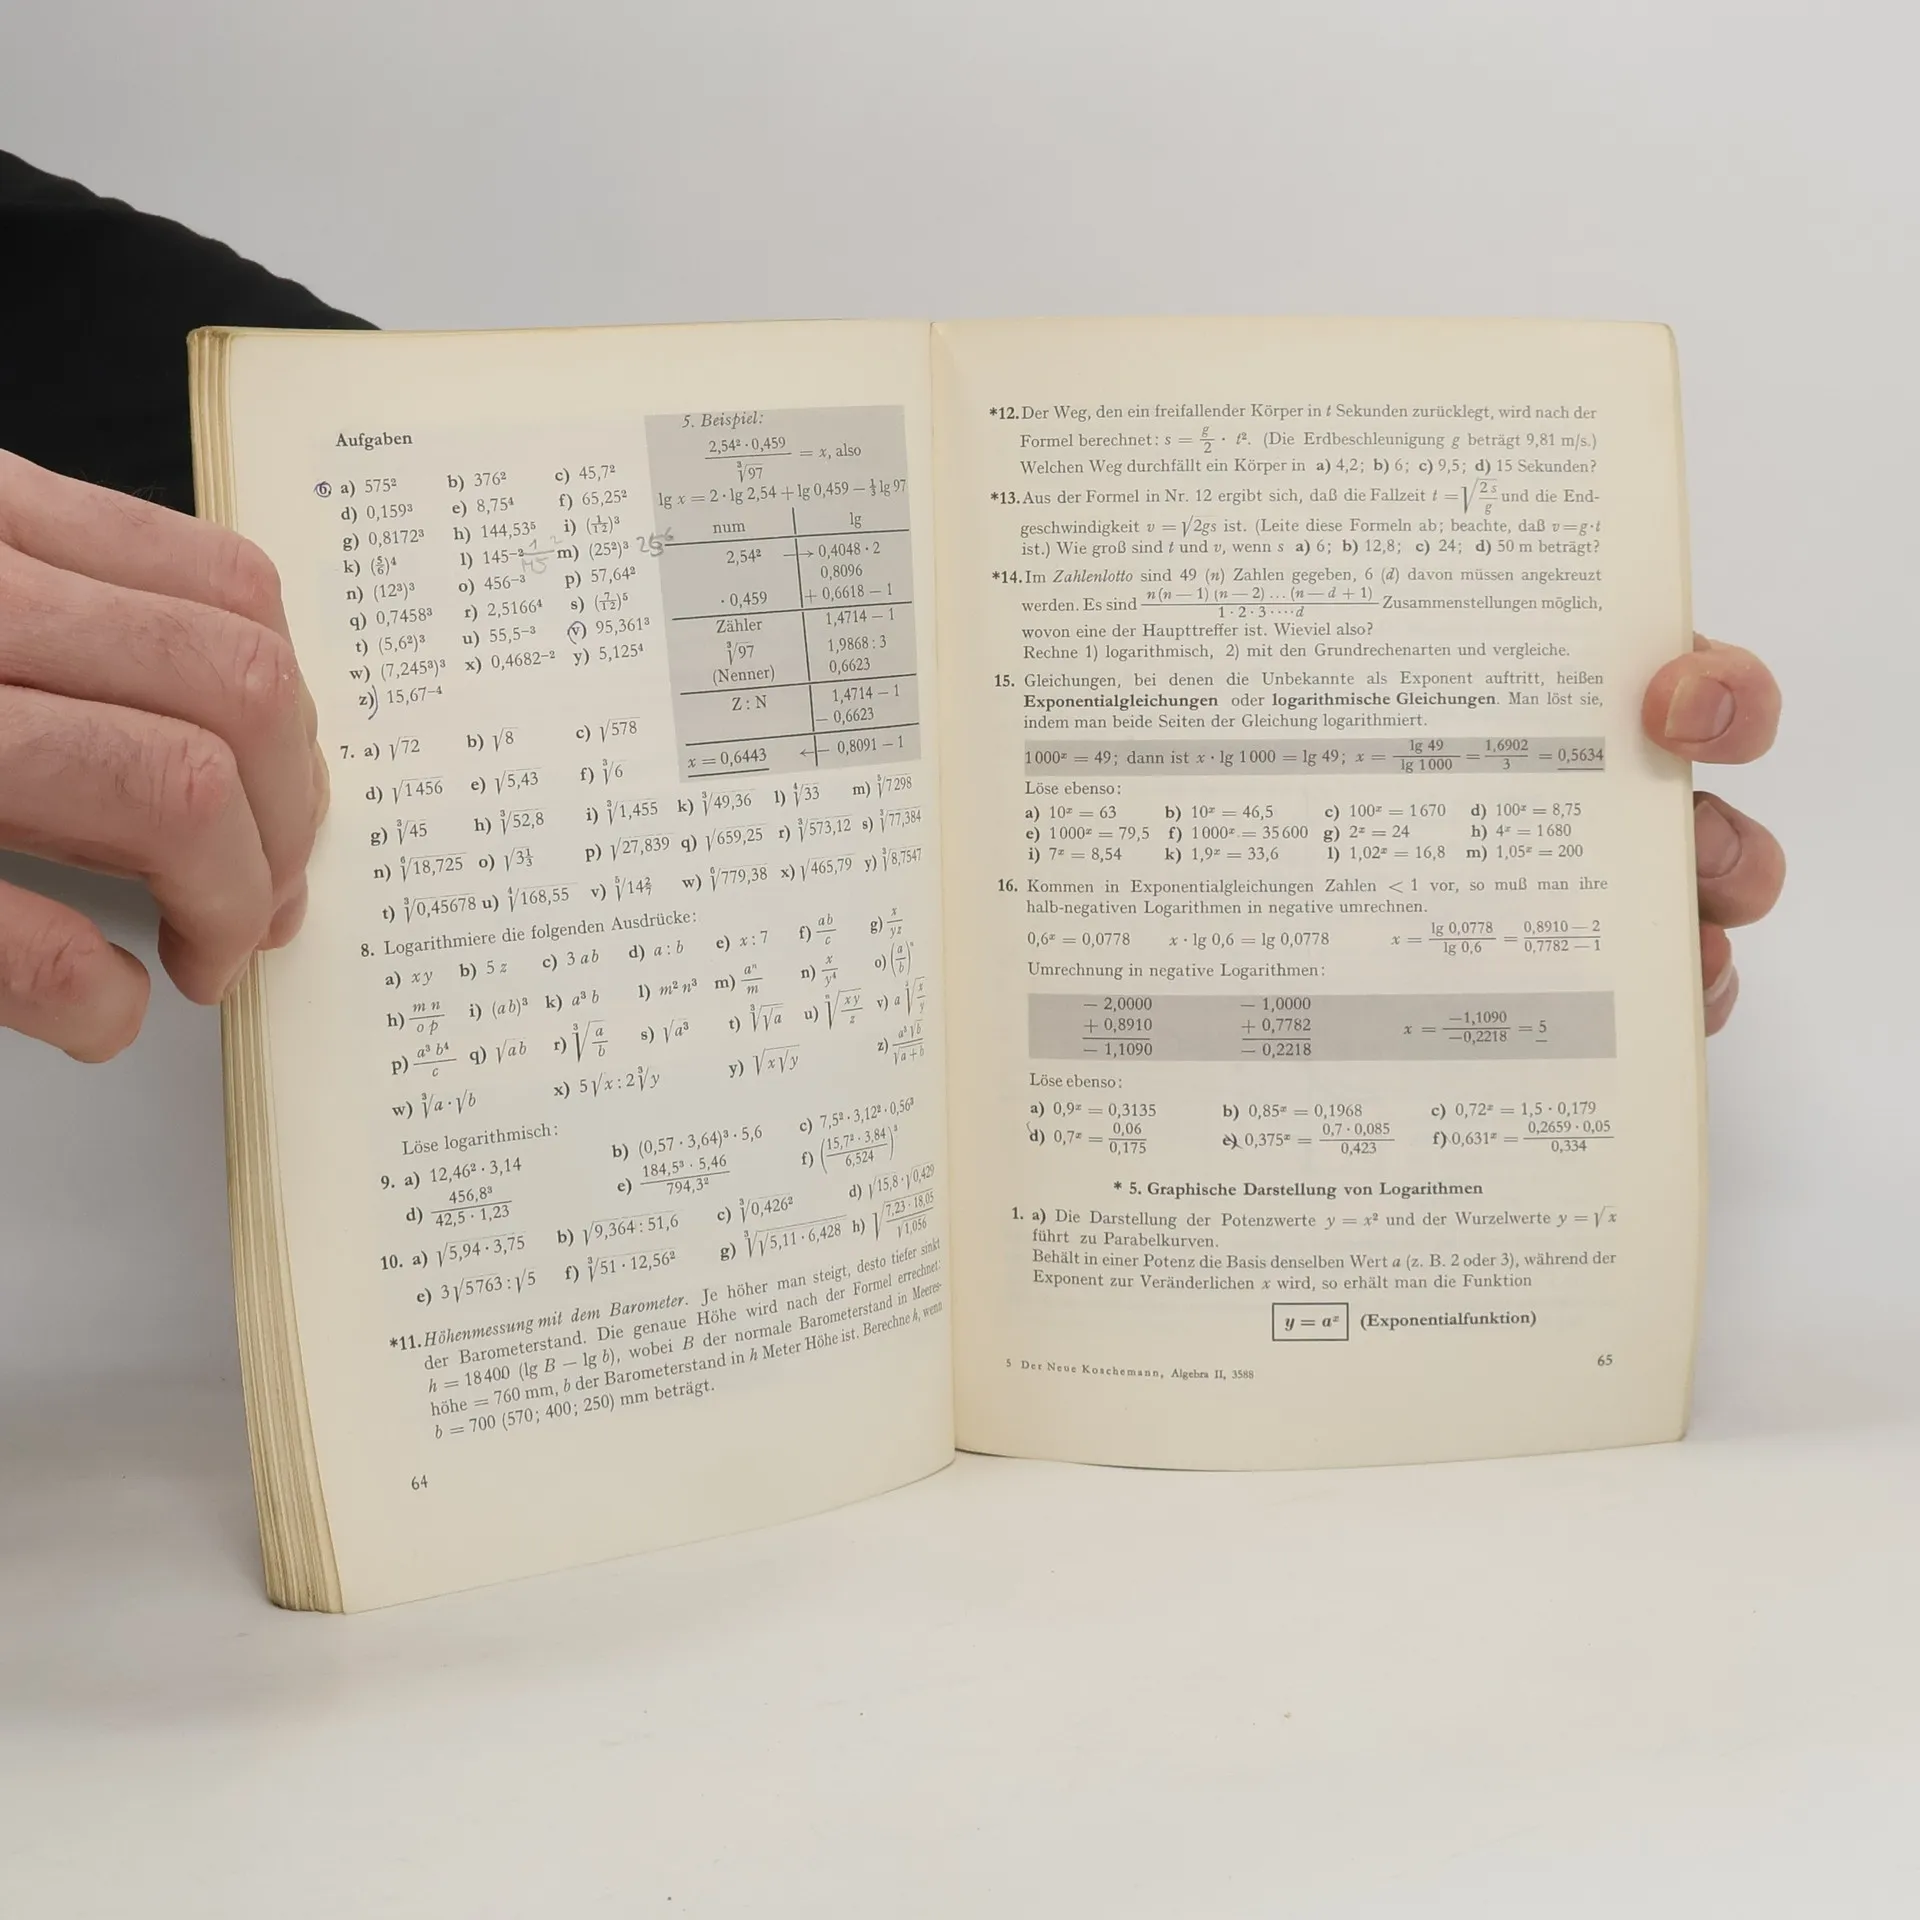 Aufgaben
6. a) 575² b) 376² c) 45,7²
d) 0,159³ e) 8,75⁴ f) 65,25²
g) 0,8172³ h) 144,53⁵ i) (1/12)³
k) (5/6)⁴ l) 145⁻² m) (25²)³ 25⁶
n) (12³)³ o) 456⁻³ p) 57,64²
q) 0,7458³ r) 2,5166⁴ s) (7/12)⁵
t) (5,6²)³ u) 55,5⁻³ v) 95,361³
w) (7,245³)³ x) 0,4682⁻² y) 5,125⁴
z) 15,67⁻⁴
5. Beispiel:
2,54² · 0,459 / ∛97 = x, also
lg x = 2 · lg 2,54 + lg 0,459 − ⅓ lg 97
num lg
2,54² → 0,4048 · 2
0,8096
· 0,459 + 0,6618 − 1
Zähler 1,4714 − 1
∛97 1,9868 : 3
(Nenner) 0,6623
Z : N 1,4714 − 1
− 0,6623
x = 0,6443 ← 0,8091 − 1
7. a) √72 b) √8 c) √578
d) √1456 e) √5,43 f) ∛6
g) ∛45 h) ∛52,8 i) ∛1,455 k) ∛49,36 l) ∜33 m) ⁵√7298
n) ⁶√18,725 o) √3⅓ p) √27,839 q) √659,25 r) ∛573,12 s) ∛77,384
t) ∛0,45678 u) ∜168,55 v) ⁵√14 2/7 w) ⁶√779,38 x) √465,79 y) ∛8,7547
8. Logarithmiere die folgenden Ausdrücke:
a) xy b) 5z c) 3ab d) a : b e) x : 7 f) ab/c g) x/yz
h) mn/op i) (ab)³ k) a³b l) m²n³ m) aⁿ/m n) x/y⁴ o) (a/b)ⁿ
p) a³b⁴/c q) √ab r) ∛(a/b) s) √a³ t) ∛√a u) ⁿ√(xy/z)
w) ∛a · √b x) 5√x : 2∛y y) √x√y z) a³√b/√a+b
Löse logarithmisch:
9. a) 12,46² · 3,14 b) (0,57 · 3,64)³ · 5,6 c) 7,5² · 3,12² · 0,56³
d) 456,8³ / 42,5 · 1,23 e) 184,5³ · 5,46 / 794,3² f) (15,7² · 3,84 / 6,524)³
10. a) √5,94 · 3,75 b) √9,364 : 51,6 c) ∛0,426² d) √15,8 · √0,429
e) 3√5763 : √5 f) ∛51 · 12,56² g) ∛√5,11 · 6,428 h) √(7,23 · 18,05 / √1,056)
*11. Höhenmessung mit dem Barometer. Je höher man steigt, desto tiefer sinkt
der Barometerstand. Die genaue Höhe wird nach der Formel errechnet:
h = 18400 (lg B − lg b), wobei B der normale Barometerstand in Meeres-
höhe = 760 mm, b der Barometerstand in h Meter Höhe ist. Berechne h, wenn
b = 700 (570; 400; 250) mm beträgt.
64
*12. Der Weg, den ein freifallender Körper in t Sekunden zurücklegt, wird nach der
Formel berechnet: s = g/2 · t². (Die Erdbeschleunigung g beträgt 9,81 m/s.)
Welchen Weg durchfällt ein Körper in a) 4,2; b) 6; c) 9,5; d) 15 Sekunden?
*13. Aus der Formel in Nr. 12 ergibt sich, daß die Fallzeit t = √(2s/g) und die End-
geschwindigkeit v = √2gs ist. (Leite diese Formeln ab; beachte, daß v = g · t
ist.) Wie groß sind t und v, wenn s a) 6; b) 12,8; c) 24; d) 50 m beträgt?
*14. Im Zahlenlotto sind 49 (n) Zahlen gegeben, 6 (d) davon müssen angekreuzt
werden. Es sind n(n − 1)(n − 2) … (n − d + 1) / 1 · 2 · 3 · … · d Zusammenstellungen möglich,
wovon eine der Haupttreffer ist. Wieviel also?
Rechne 1) logarithmisch, 2) mit den Grundrechenarten und vergleiche.
15. Gleichungen, bei denen die Unbekannte als Exponent auftritt, heißen
Exponentialgleichungen oder logarithmische Gleichungen. Man löst sie,
indem man beide Seiten der Gleichung logarithmiert.
1000ˣ = 49; dann ist x · lg 1000 = lg 49; x = lg 49 / lg 1000 = 1,6902 / 3 = 0,5634
Löse ebenso:
a) 10ˣ = 63 b) 10ˣ = 46,5 c) 100ˣ = 1670 d) 100ˣ = 8,75
e) 1000ˣ = 79,5 f) 1000ˣ = 35600 g) 2ˣ = 24 h) 4ˣ = 1680
i) 7ˣ = 8,54 k) 1,9ˣ = 33,6 l) 1,02ˣ = 16,8 m) 1,05ˣ = 200
16. Kommen in Exponentialgleichungen Zahlen < 1 vor, so muß man ihre
halb-negativen Logarithmen in negative umrechnen.
0,6ˣ = 0,0778 x · lg 0,6 = lg 0,0778 x = lg 0,0778 / lg 0,6 = 0,8910 − 2 / 0,7782 − 1
Umrechnung in negative Logarithmen:
− 2,0000 − 1,0000
+ 0,8910 + 0,7782 x = −1,1090 / −0,2218 = 5
− 1,1090 − 0,2218
Löse ebenso:
a) 0,9ˣ = 0,3135 b) 0,85ˣ = 0,1968 c) 0,72ˣ = 1,5 · 0,179
d) 0,7ˣ = 0,06 / 0,175 e) 0,375ˣ = 0,7 · 0,085 / 0,423 f) 0,631ˣ = 0,2659 · 0,05 / 0,334
* 5. Graphische Darstellung von Logarithmen
1. a) Die Darstellung der Potenzwerte y = x² und der Wurzelwerte y = √x
führt zu Parabelkurven.
Behält in einer Potenz die Basis denselben Wert a (z. B. 2 oder 3), während der
Exponent zur Veränderlichen x wird, so erhält man die Funktion
y = aˣ (Exponentialfunktion)
5 Der Neue Koschemann, Algebra II, 3588
65